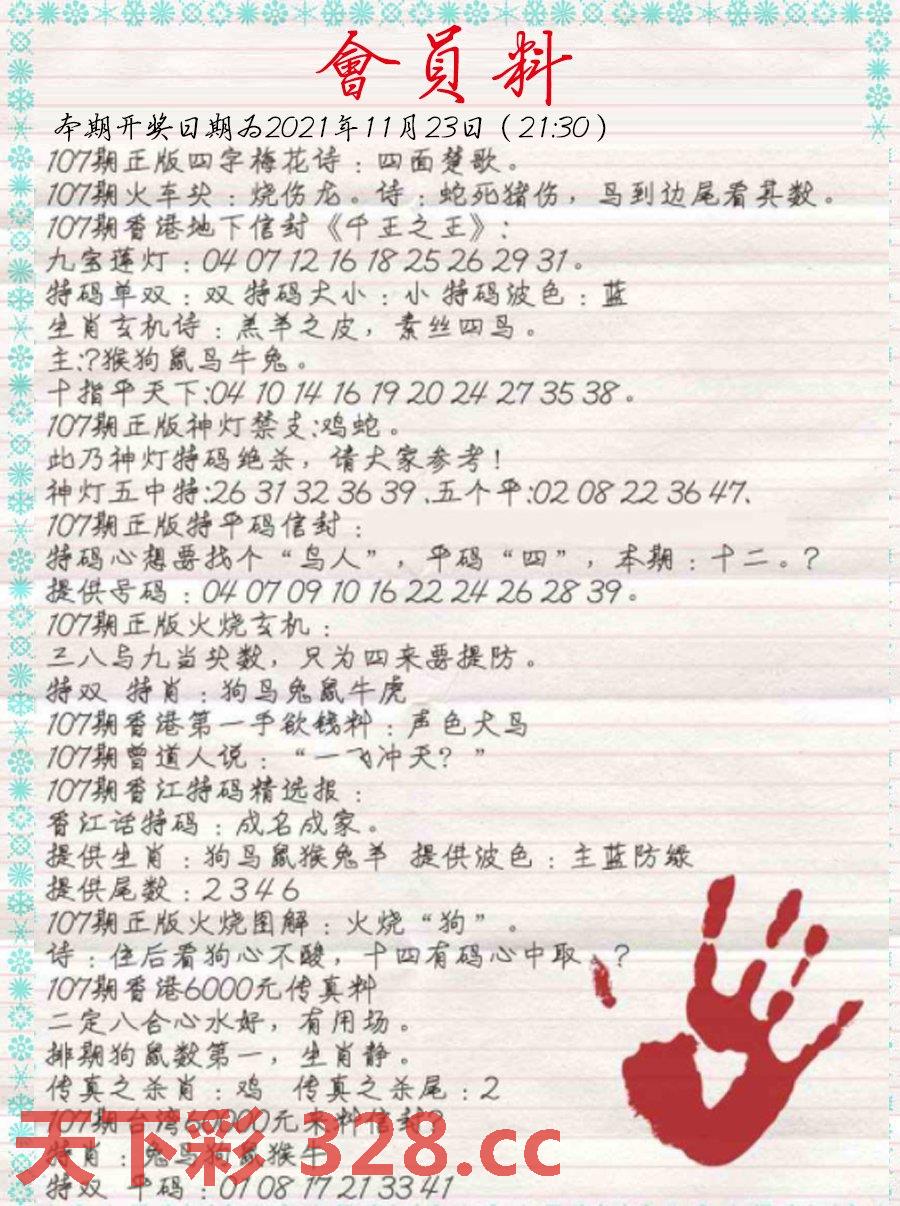 會員料
本期开奖日期为2021年11月23日（21:30）
107期正版四字梅花诗：四面楚歌。
107期火车头：烧伤龙。诗：蛇死猪伤，鸟到边尾看其数。
107期香港地下信封《千王之王》：
九宝莲灯：04 07 12 16 18 25 26 29 31。
特码单双：双 特码大小：小 特码波色：蓝
生肖玄机诗：羔羊之皮，素丝四鸟。
主:?猴狗鼠鸟牛兔。
十指平天下:04 10 14 16 19 20 24 27 35 38。
107期正版神灯禁支:鸡蛇。
此乃神灯特码绝杀，请大家参考！
神灯五中特:26 31 32 36 39、五个平:02 08 22 36 47、
107期正版特平码信封：
特码心想要找个“鸟人”，平码“四”，本期：十二。?
提供号码：04 07 09 10 16 22 24 26 28 39。
107期正版火烧玄机：
三八与九当头数，只为四来要提防。
特双 特肖：狗鸟兔鼠牛虎
107期香港第一手欲钱料：声色犬鸟
107期曾道人说：“一飞冲天？”
107期香江特码精选报：
香江话特码：成名成家。
提供生肖：狗鸟鼠猴兔羊 提供波色：主蓝防绿
提供尾数：2 3 4 6
107期正版火烧图解：火烧“狗”。
诗：住后看狗心不酸，十四有码心中取、?
107期香港6000元传真料
二定八合心水好，有用场。
排期狗鼠数第一，生肖静。
传真之杀肖：鸡 传真之杀尾：2
107期台湾60000元来料信封?
特肖：兔鸟狗鼠猴牛
天下彩 328.cc
特双 平码：01 08 17 21 33 41